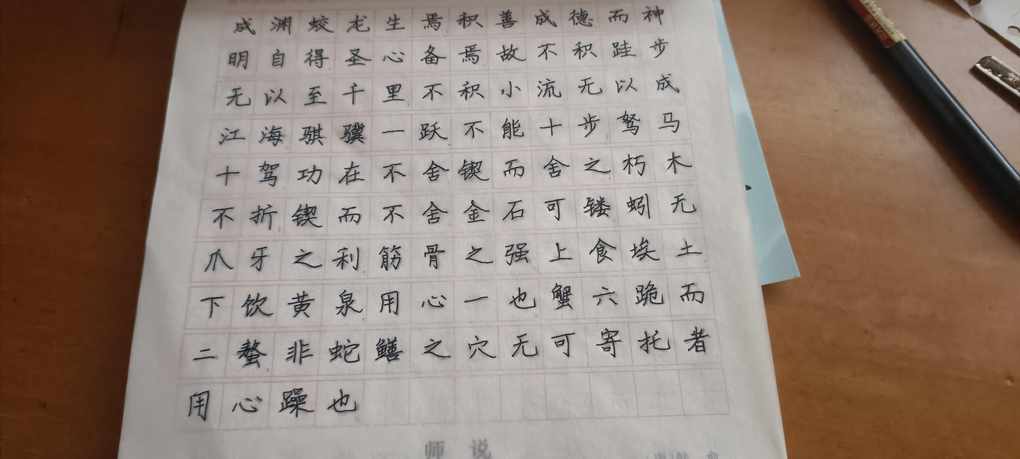 成渊蛟龙生焉积善成德而神
明自得圣心备焉故不积跬步
无以至千里不积小流无以成
江海骐骥一跃不能十步驽马
十驾功在不舍锲而舍之朽木
不折锲而不舍金石可镂蚓无
爪牙之利筋骨之强上食埃土
下饮黄泉用心一也蟹六跪而
二螯非蛇鳝之穴无可寄托者
用心躁也
师说